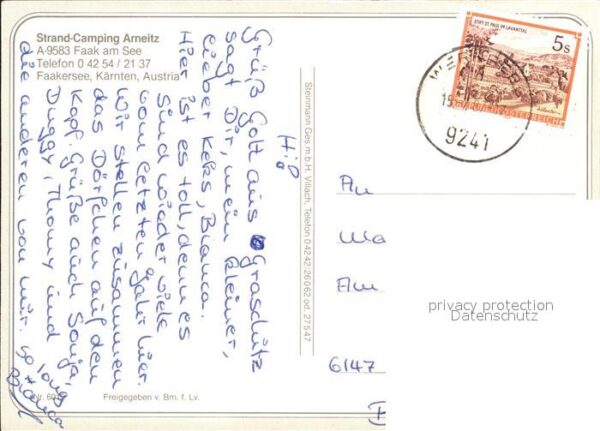 Strand-Camping Arneitz
A-9583 Faak am See
Telefon 0 42 54 / 21 37
Faakersee, Kärnten, Austria
Hi!
Grüß Gott aus Graschitz
sagt Dir, mein kleiner,
lieber Keks, Bianca.
Hier ist es toll, denn es
sind wieder viele
vom letzten Jahr hier.
Wir stellen zusammen
das Dörfchen auf den
Kopf. Grüße auch Sonja,
Duggy, Thomy und
die anderen von mir. so long
Bianca
Nr. 60
Freigegeben v. Bm. f. Lv.
Steinmann Ges.m.b.H. Villach, Telefon 0 42 42 / 26 0 62 od. 27 5 47
STIFT ST. PAUL IM LAVANTTAL
5s
REPUBLIK ÖSTERREICH
9241
An
Am
6147
privacy protection
Datenschutz